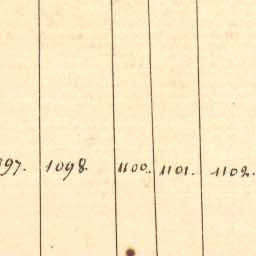 97. 1098. 1100. 1101. 1102.